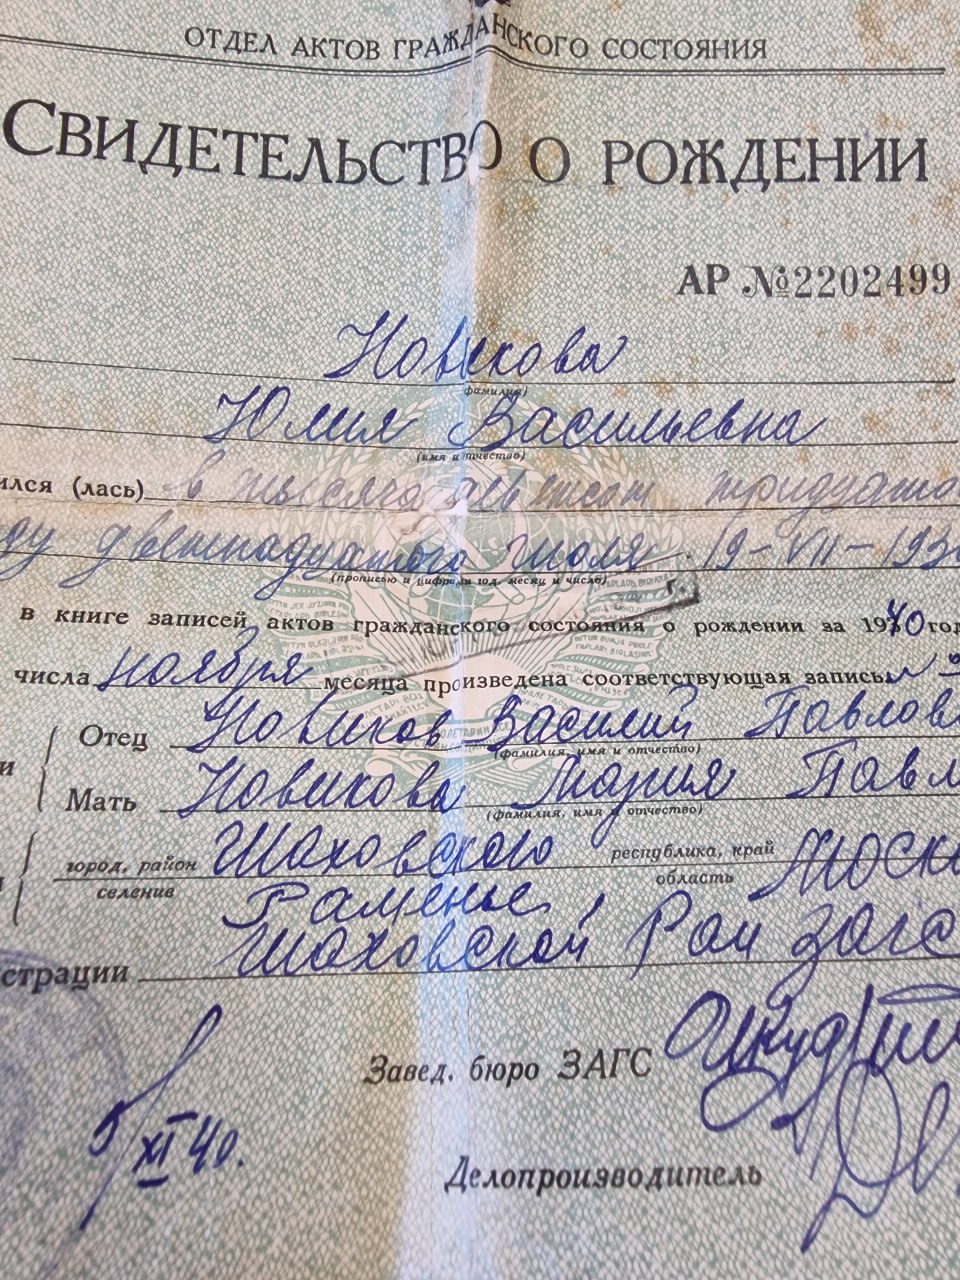 ОТДЕЛ АКТОВ ГРАЖДАНСКОГО СОСТОЯНИЯ
СВИДЕТЕЛЬСТВО О РОЖДЕНИИ
АР №2202499
Новикова
(фамилия)
Юлия Васильевна
(имя и отчество)
ился (лась) в тысяча девятсот тридцато
ду двенадцатого июля 19-VII-193
(прописью и цифрами год, месяц и число)
в книге записей актов гражданского состояния о рождении за 1940 год
числа ноября месяца произведена соответствующая запись
Отец Новиков Василий Павлов
(фамилия, имя и отчество)
и
Мать Новикова Мария Павл
(фамилия, имя и отчество)
город, район Шаховского республика, край Моск
селение Раменье, область
страции Шаховской Рай загс
Завед. бюро ЗАГС
5/XI 40.
Делопроизводитель